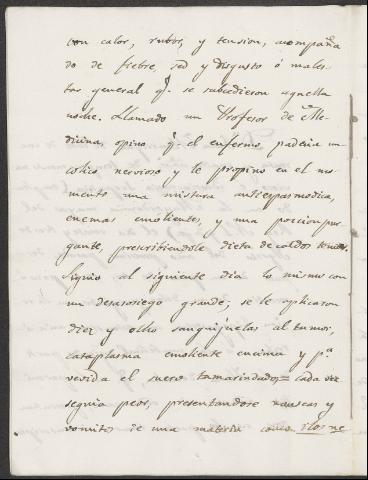 con calor, rubor, y tension, acompaña
do de fiebre, sed y disgusto ó males
tar general q.e se subcedieron aquella
noche. Llamado un Profesor de Me
dicina, opino q.e el enfermo, padecia un
colico nervioso y le propino en el mo
mento una mistura antiespasmodica,
enemas emolientes, y una porcion pur
gante, prescribiendole dieta de caldos tenues.
Siguio al siguiente dia lo mismo con
un desasosiego grande; se le aplicaron
diez y ocho sanguijuelas al tumor,
cataplasma emoliente encima y p.a
vevida el suero tamarindado = cada vez
seguia peor, presentandose nauseas y
vomitos de una materia como